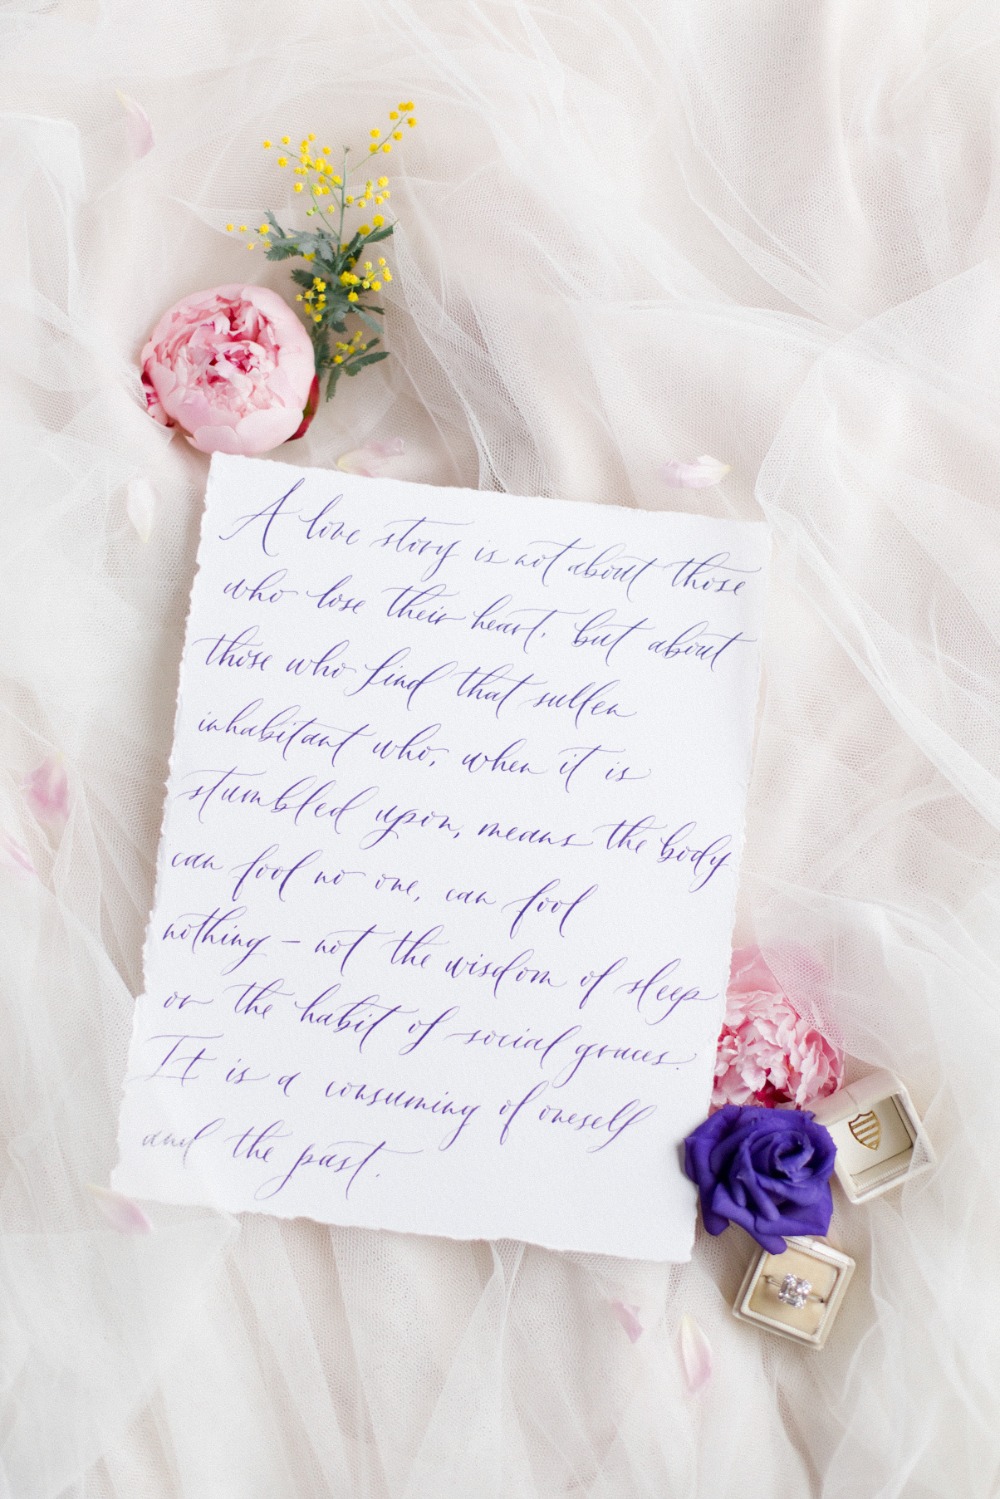 A love story is not about those
who lose their heart, but about
those who find that sullen
inhabitant who, when it is
stumbled upon, means the body
can fool no one, can fool
nothing – not the wisdom of sleep
or the habit of social graces.
It is a consuming of oneself
and the past.